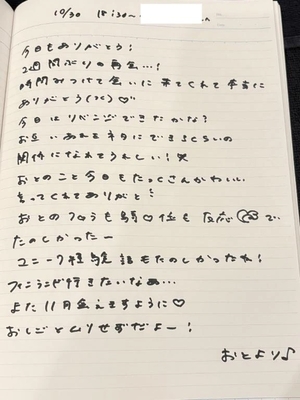 10/30 18:30〜
今日もありがとう!
2週間ぶりの再会…!
時間みつけて会いに来てくれて本当に
ありがとう
今日はリベンジできたかな?
お互いあれをネタにできるくらいの
関係になれてうれしい!笑
おとのこと今日もたっくさんかわいい
言ってくれてありがと
おとのフロウも騎♡位も反応 で
たのしかったー
ユニーク 験談もたのしかったね!
行きたいなぁ…
また11月会えますように♡
おしごとムリせずだよー!
おとより♪